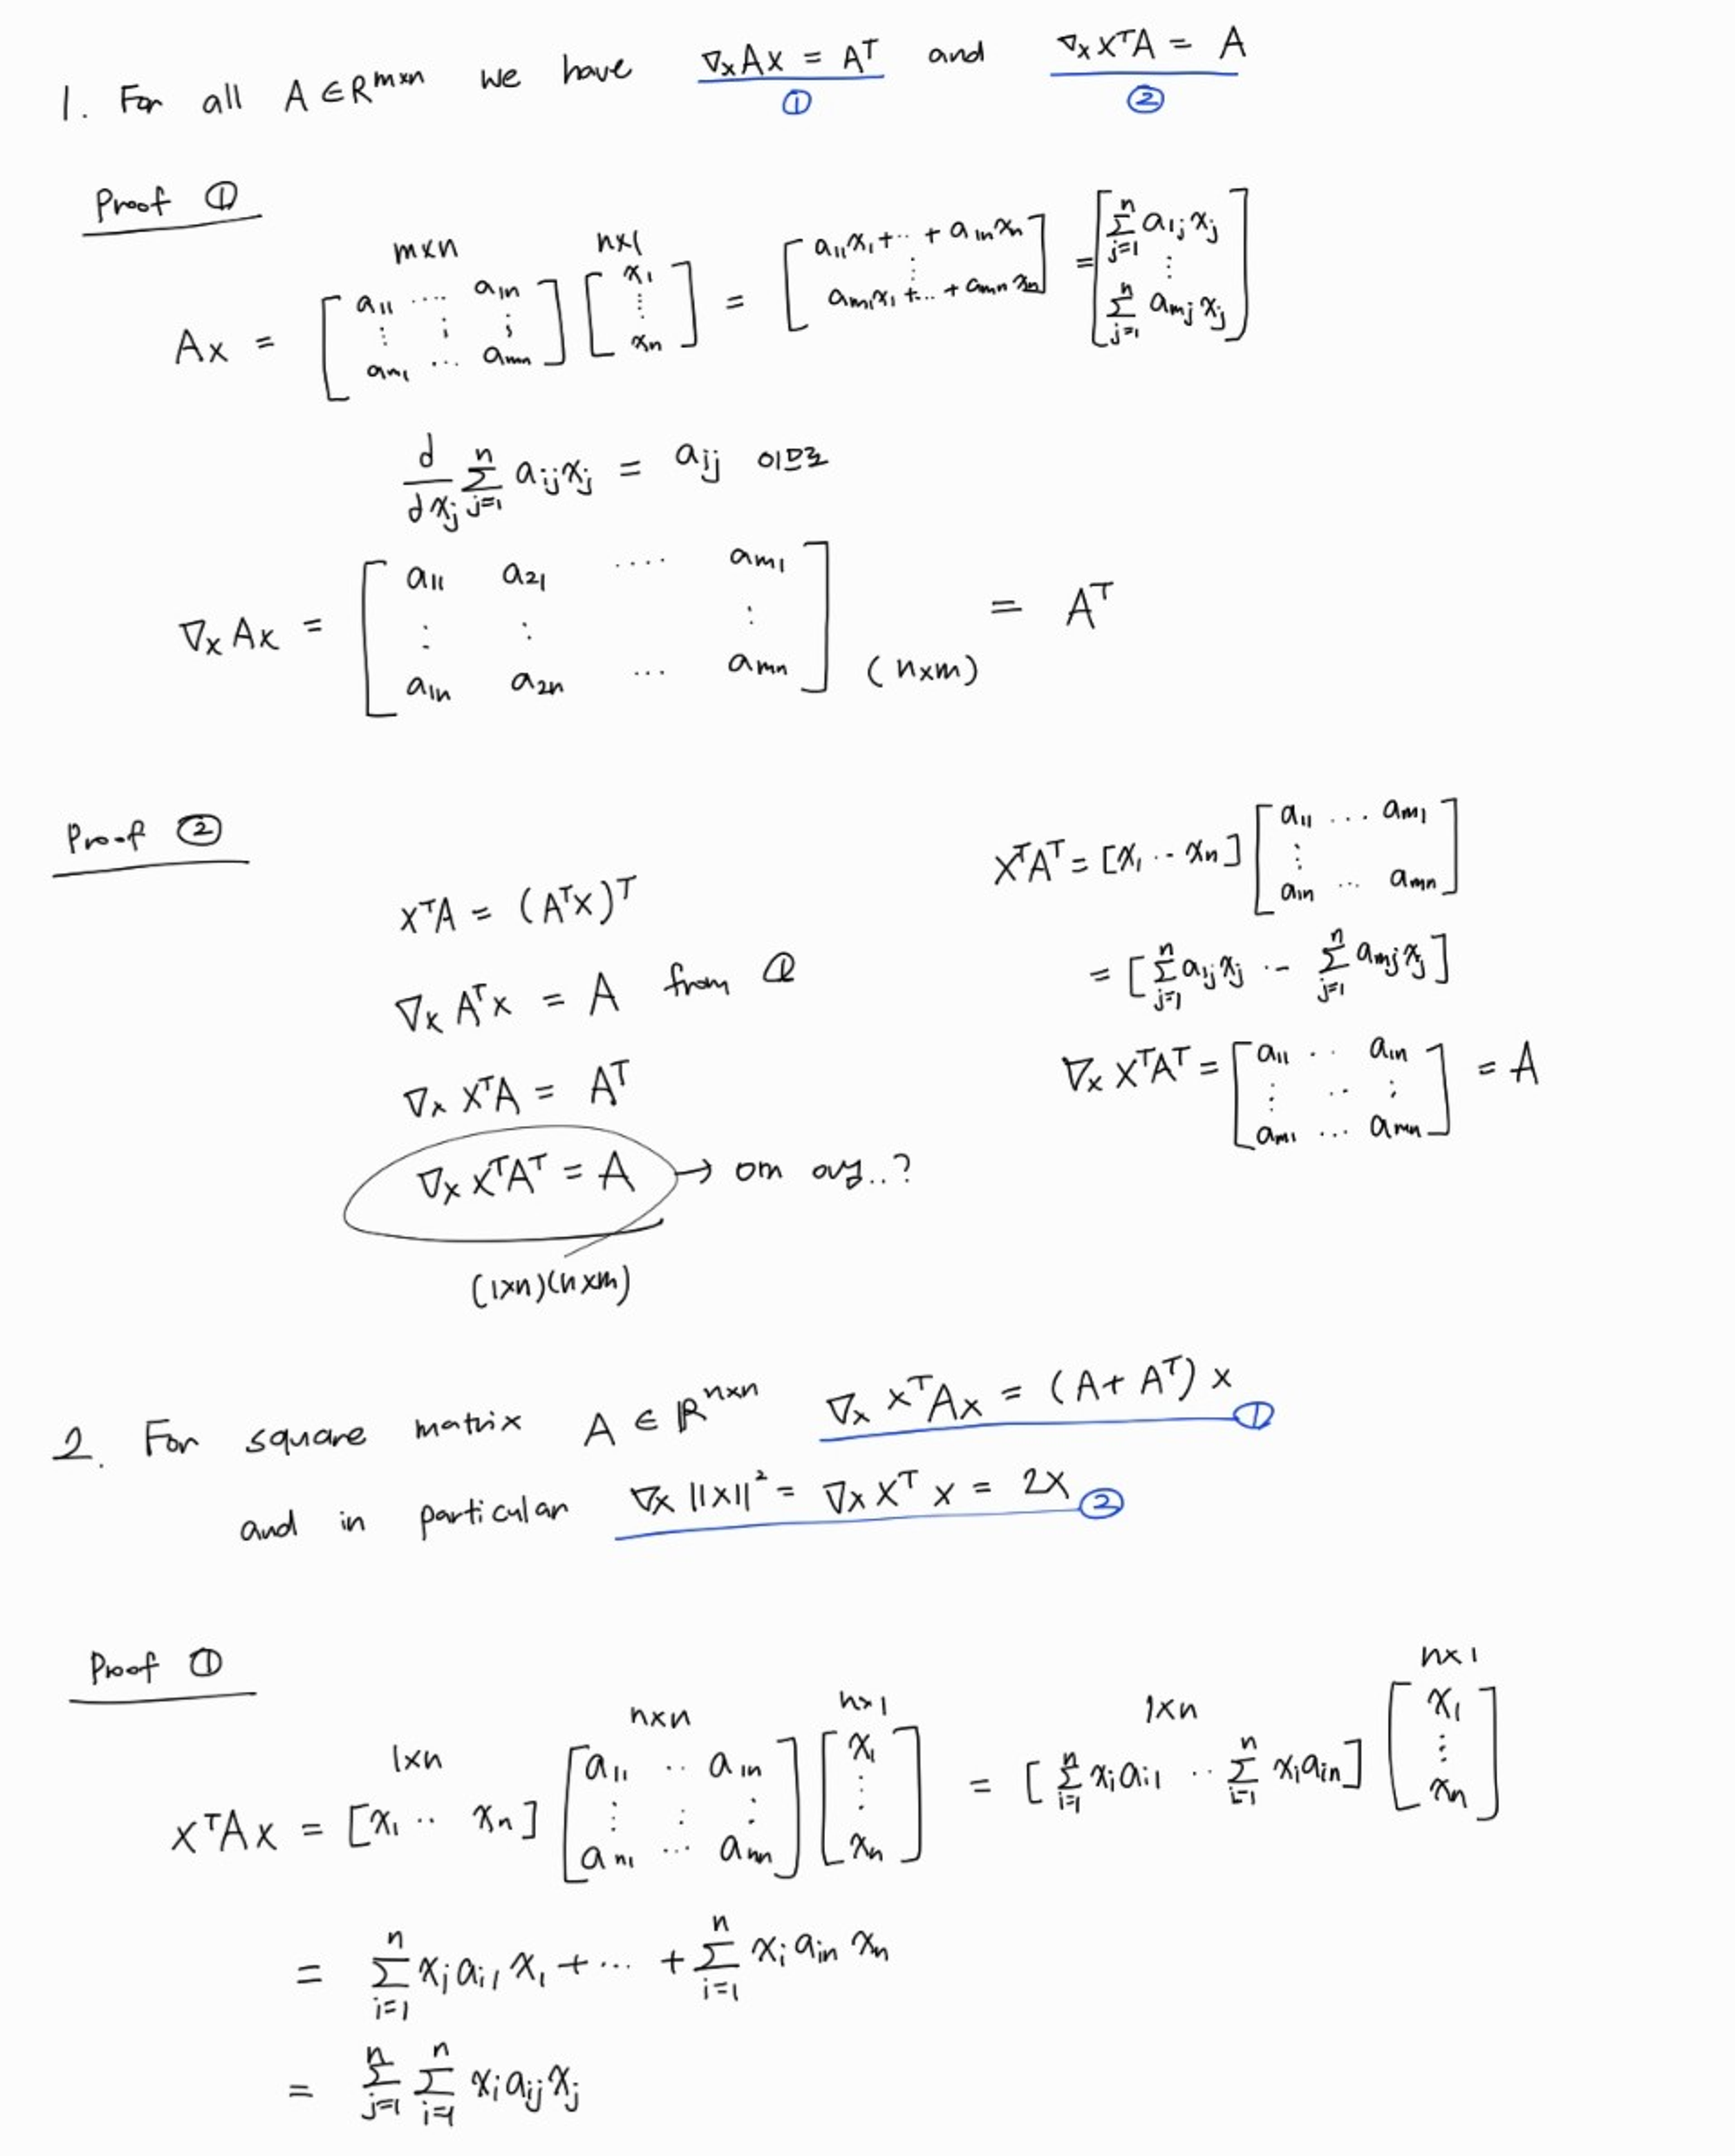 1. For all A ∈ R^{m×n} we have ∇ₓAx = Aᵀ and ∇ₓxᵀA = A
① ②
Proof ①
m×n n×1
Ax = [a₁₁ ···· a₁ₙ ⋮ ⋮ ⋮ aₘ₁ ··· aₘₙ] [x₁ ⋮ xₙ] = [a₁₁x₁+··+a₁ₙxₙ ⋮ aₘ₁x₁+...+aₘₙxₙ] = [∑_{j=1}^{n} a₁ⱼxⱼ ⋮ ∑_{j=1}^{n} aₘⱼxⱼ]
d/dxⱼ ∑_{j=1}^{n} aᵢⱼxⱼ = aᵢⱼ 이므로
∇ₓAx = [a₁₁ a₂₁ ···· aₘ₁ ⋮ ⋮ ⋮ a₁ₙ a₂ₙ ... aₘₙ] (n×m) = Aᵀ
Proof ②
xᵀA = (Aᵀx)ᵀ
∇ₓ Aᵀx = A from ①
∇ₓ xᵀA = Aᵀ
∇ₓ xᵀAᵀ = A →
(1×n)(n×m)
xᵀAᵀ = [x₁ ·· xₙ] [a₁₁ ... aₘ₁ ⋮ a₁ₙ ... aₘₙ]
= [∑_{j=1}^{n} a₁ⱼxⱼ ·- ∑_{j=1}^{n} aₘⱼxⱼ]
∇ₓ xᵀAᵀ = [a₁₁ ·· a₁ₙ ⋮ ·· ⋮ aₘ₁ ... aₘₙ] = A
2. For square matrix A ∈ ℝ^{n×n} ∇ₓ xᵀAx = (A+Aᵀ)x ①
and in particular ∇ₓ ||x||² = ∇ₓ xᵀx = 2x ②
Proof ①
1×n n×n n×1 1×n n×1
xᵀAx = [x₁ ·· xₙ] [a₁₁ ·· a₁ₙ ⋮ ⋮ ⋮ aₙ₁ ... aₙₙ] [x₁ ⋮ xₙ] = [∑_{i=1}^{n} xᵢaᵢ₁ ·· ∑_{i=1}^{n} xᵢaᵢₙ] [x₁ ⋮ xₙ]
= ∑_{i=1}^{n} xᵢaᵢ₁x₁ + ... + ∑_{i=1}^{n} xᵢaᵢₙxₙ
= ∑_{j=1}^{n} ∑_{i=1}^{n} xᵢaᵢⱼxⱼ